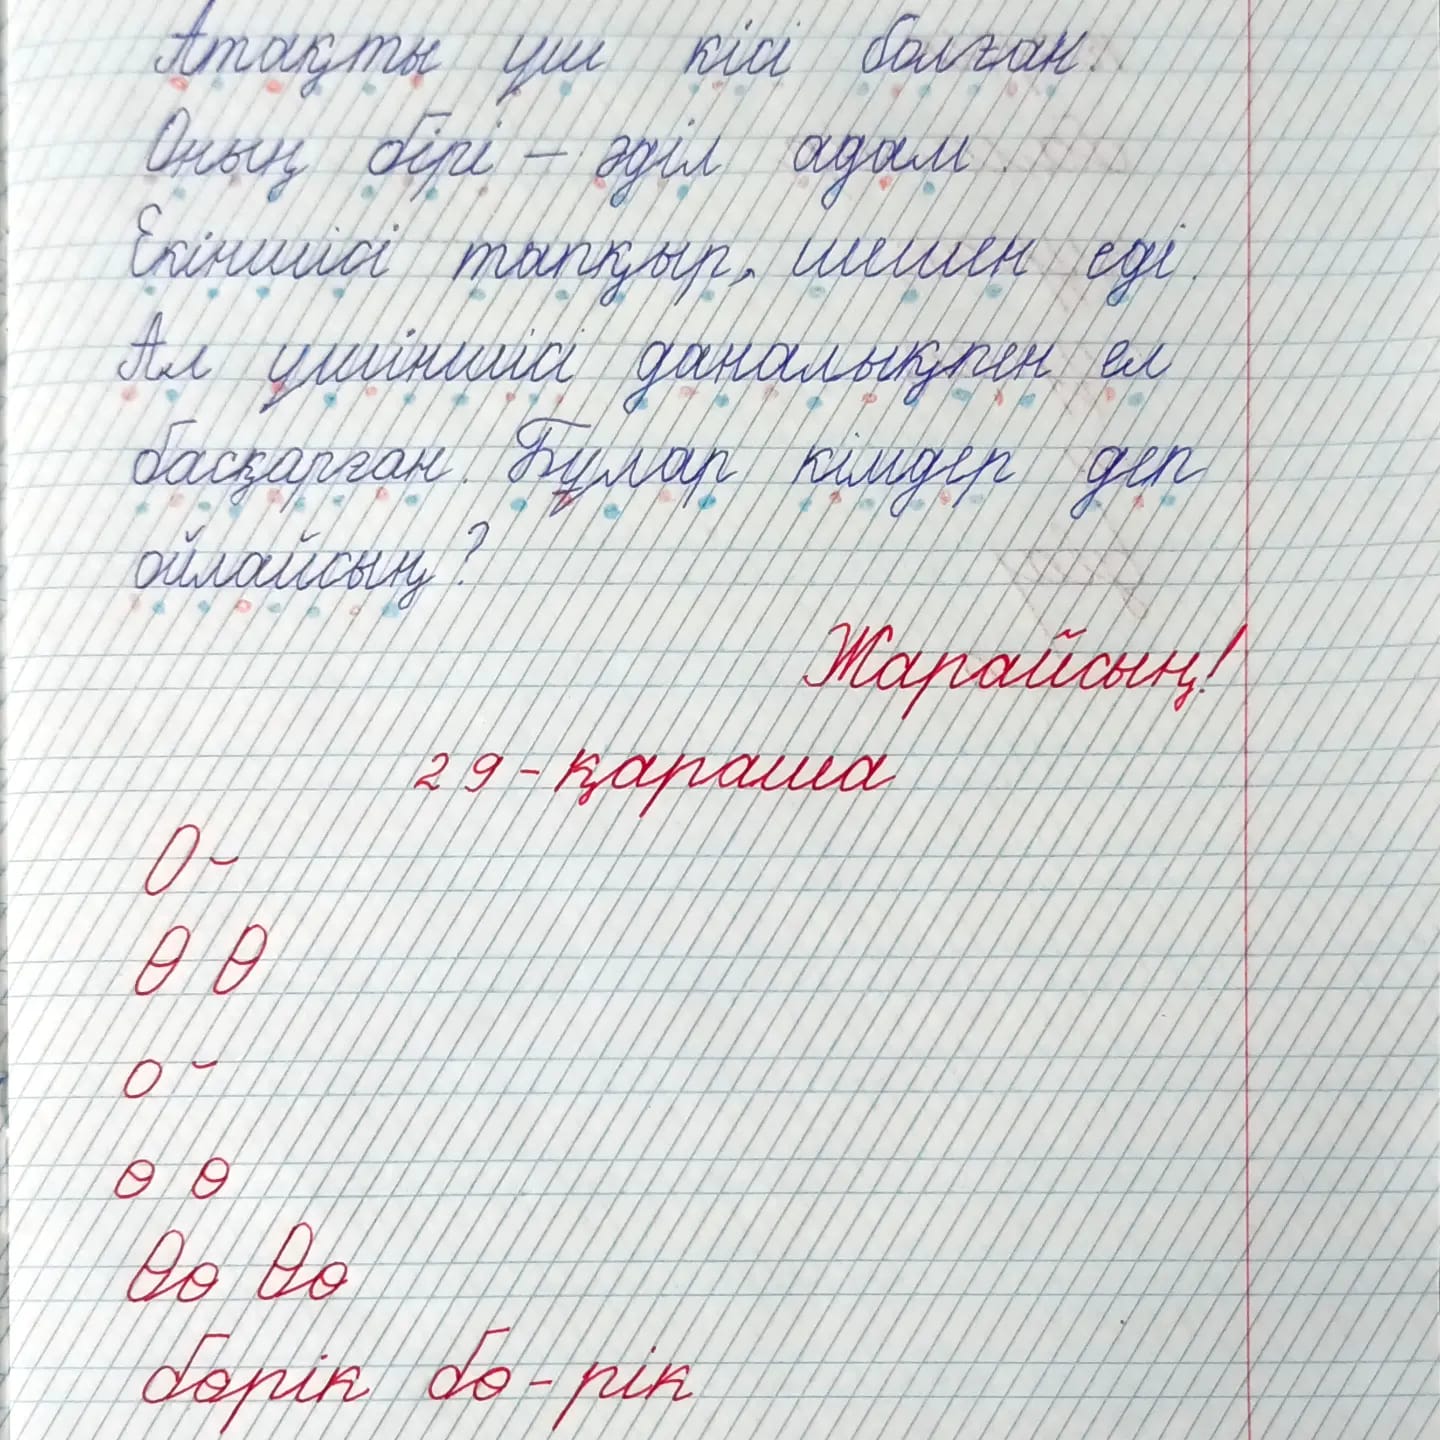 Атақты үш кісі болған.
Оның бірі – әділ адам.
Екіншісі тапқыр, шешен еді.
Ал үшіншісі даналықпен ел
басқарған. Бұлар кімдер деп
ойлайсың?
Жарайсың!
29-қараша
О ~
Ө Ө
о ~
ө ө
Өө Өө
бөрік бө-рік